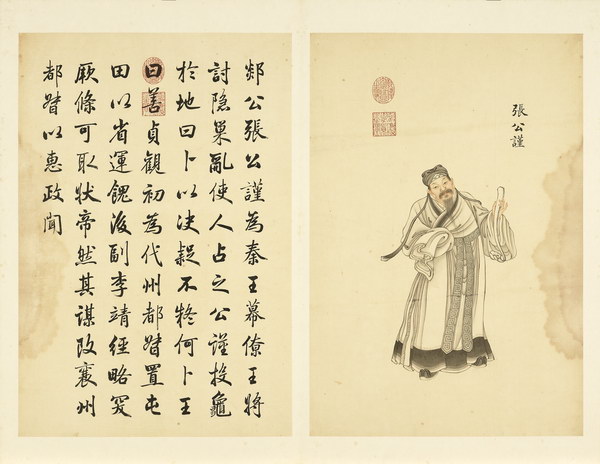 張公謹
郯公張公謹為秦王幕僚王將
討隱巢亂使人占之公謹投龜
於地曰卜以決疑不疑何卜王
曰善貞觀初為代州都督置屯
田以省運餽後副李靖經略突
厥條可取狀帝然其謀改襄州
都督以惠政聞